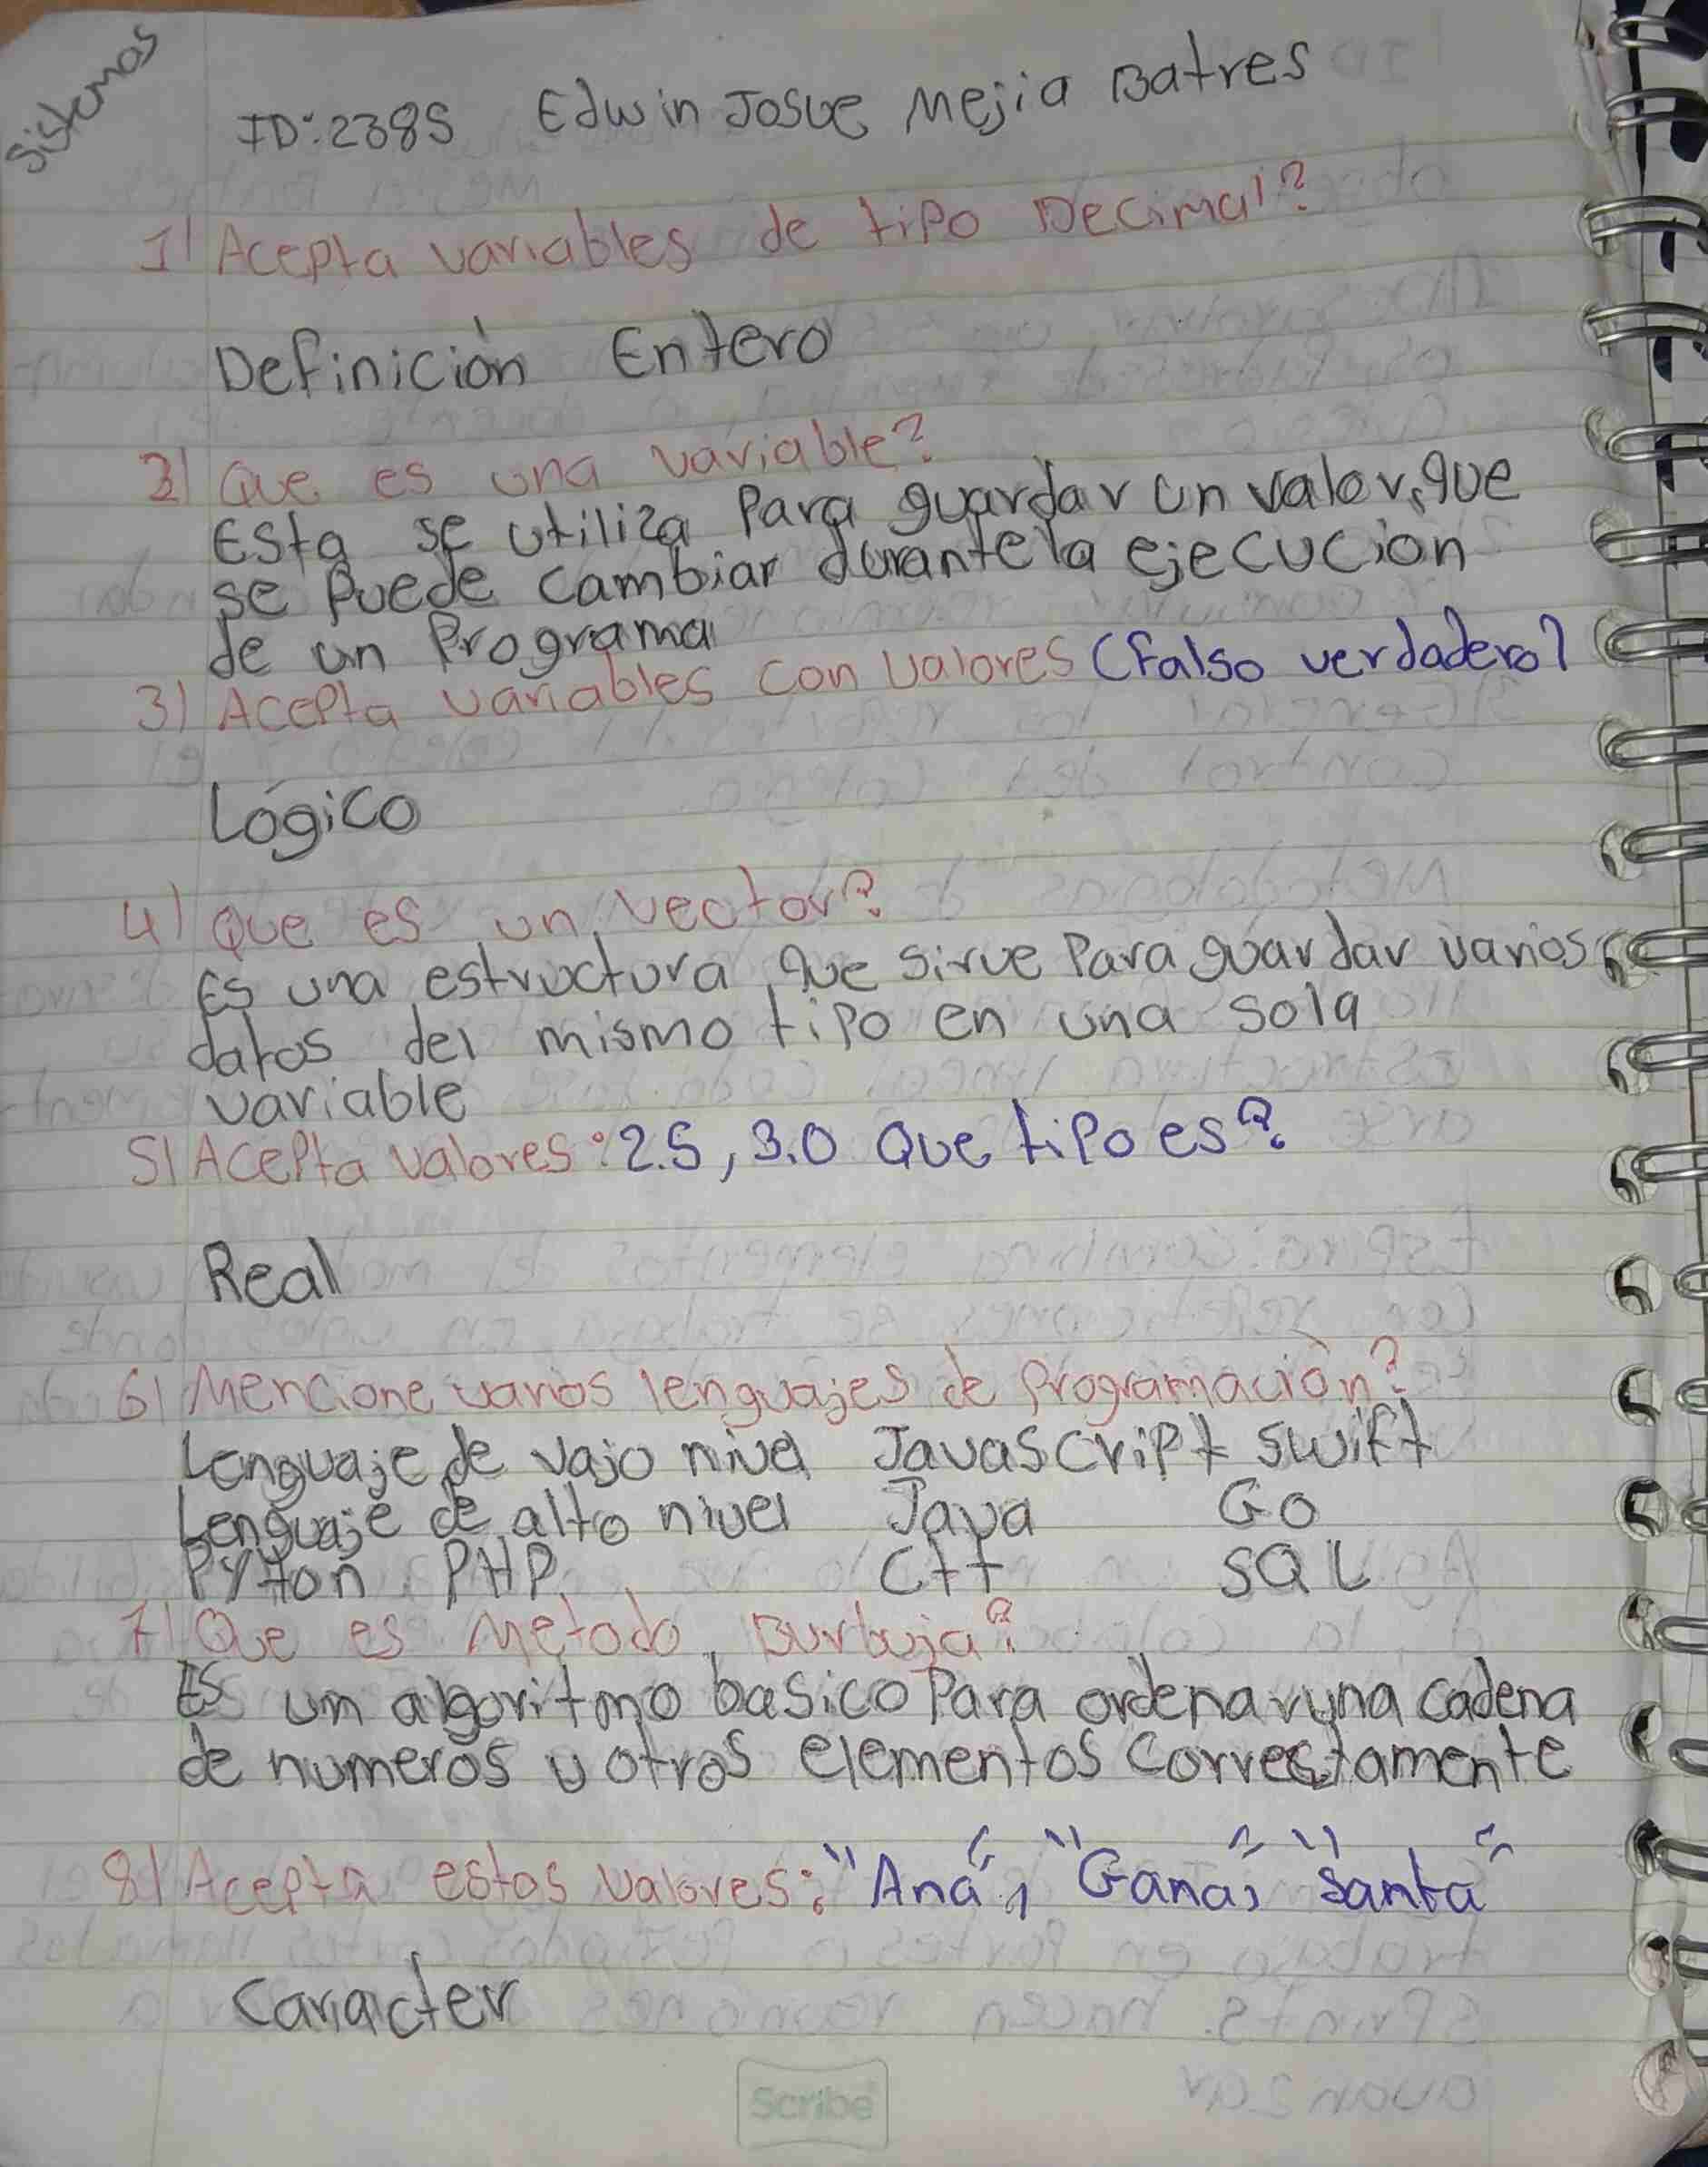 Sistemas
ID:2385 Edwin Josue Mejia Batres
1) Acepta variables de tipo Decimal?
Definición Entero
2) Que es una variable?
Esta se utiliza Para guardar un valor, que
se Puede cambiar durante la ejecucion
de un Programa
3) Acepta variables con valores (Falso verdadero)
Lógico
4) Que es un vector?
Es una estructura que sirve Para guardar varios
datos del mismo tipo en una sola
variable
5) Acepta valores: 2.5, 3.0 Que tipo es?
Real
6) Mencione varios lenguajes de Programación?
Lenguaje de vajo nivel Javascript swift
Lenguaje de alto nivel Java Go
Pyton PHP C++ SQL
7) Que es Metodo Burbuja?
Es um algoritmo basico Para ordenar una cadena
de numeros u otros elementos correctamente
8) Acepta estos valores: "Ana", "Gana", "Santa"
Caracter
Scribe